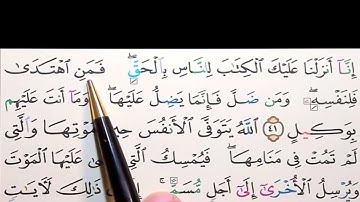 إِنَّآ أَنزَلْنَا عَلَيْكَ ٱلْكِتَٰبَ لِلنَّاسِ بِٱلْحَقِّ ۖ فَمَنِ ٱهْتَدَىٰ
فَلِنَفْسِهِۦ ۖ وَمَن ضَلَّ فَإِنَّمَا يَضِلُّ عَلَيْهَا ۖ وَمَآ أَنتَ عَلَيْهِم
بِوَكِيلٍ ٤١ ٱللَّهُ يَتَوَفَّى ٱلْأَنفُسَ حِينَ مَوْتِهَا وَٱلَّتِى
لَمْ تَمُتْ فِى مَنَامِهَا ۖ فَيُمْسِكُ ٱلَّتِى عَلَيْهَا ٱلْمَوْتَ
وَيُرْسِلُ ٱلْأُخْرَىٰٓ إِلَىٰٓ أَجَلٍ مُّسَمًّى ۚ إِنَّ ذَٰلِكَ لَءَايَٰتٍ